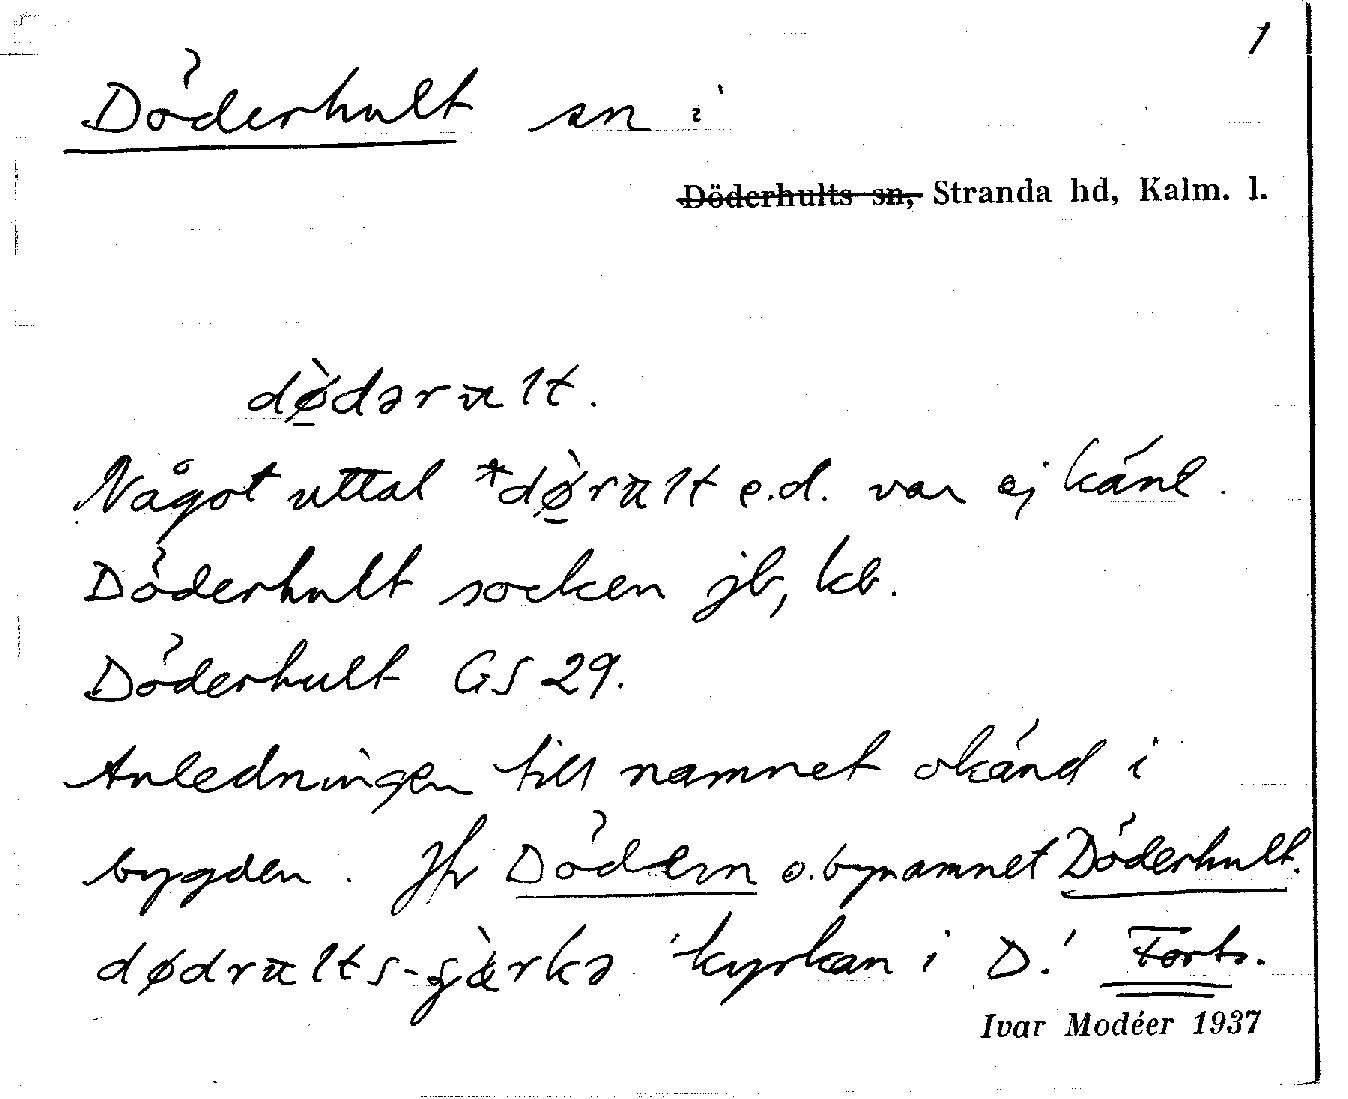 1
Döderhult sn i
Döderhults sn, Stranda hd, Kalm. l.
dø̀dərult.
Något uttal *dø̀rult e.d. var ej känt.
Döderhult socken jb, kb.
Döderhult GS 29.
Anledningen till namnet okänd i
bygden. Jfr Dödern o. bynamnet Döderhult.
dødrults-çàrkə 'kyrkan i D.' Forts.
Ivar Modéer 1937